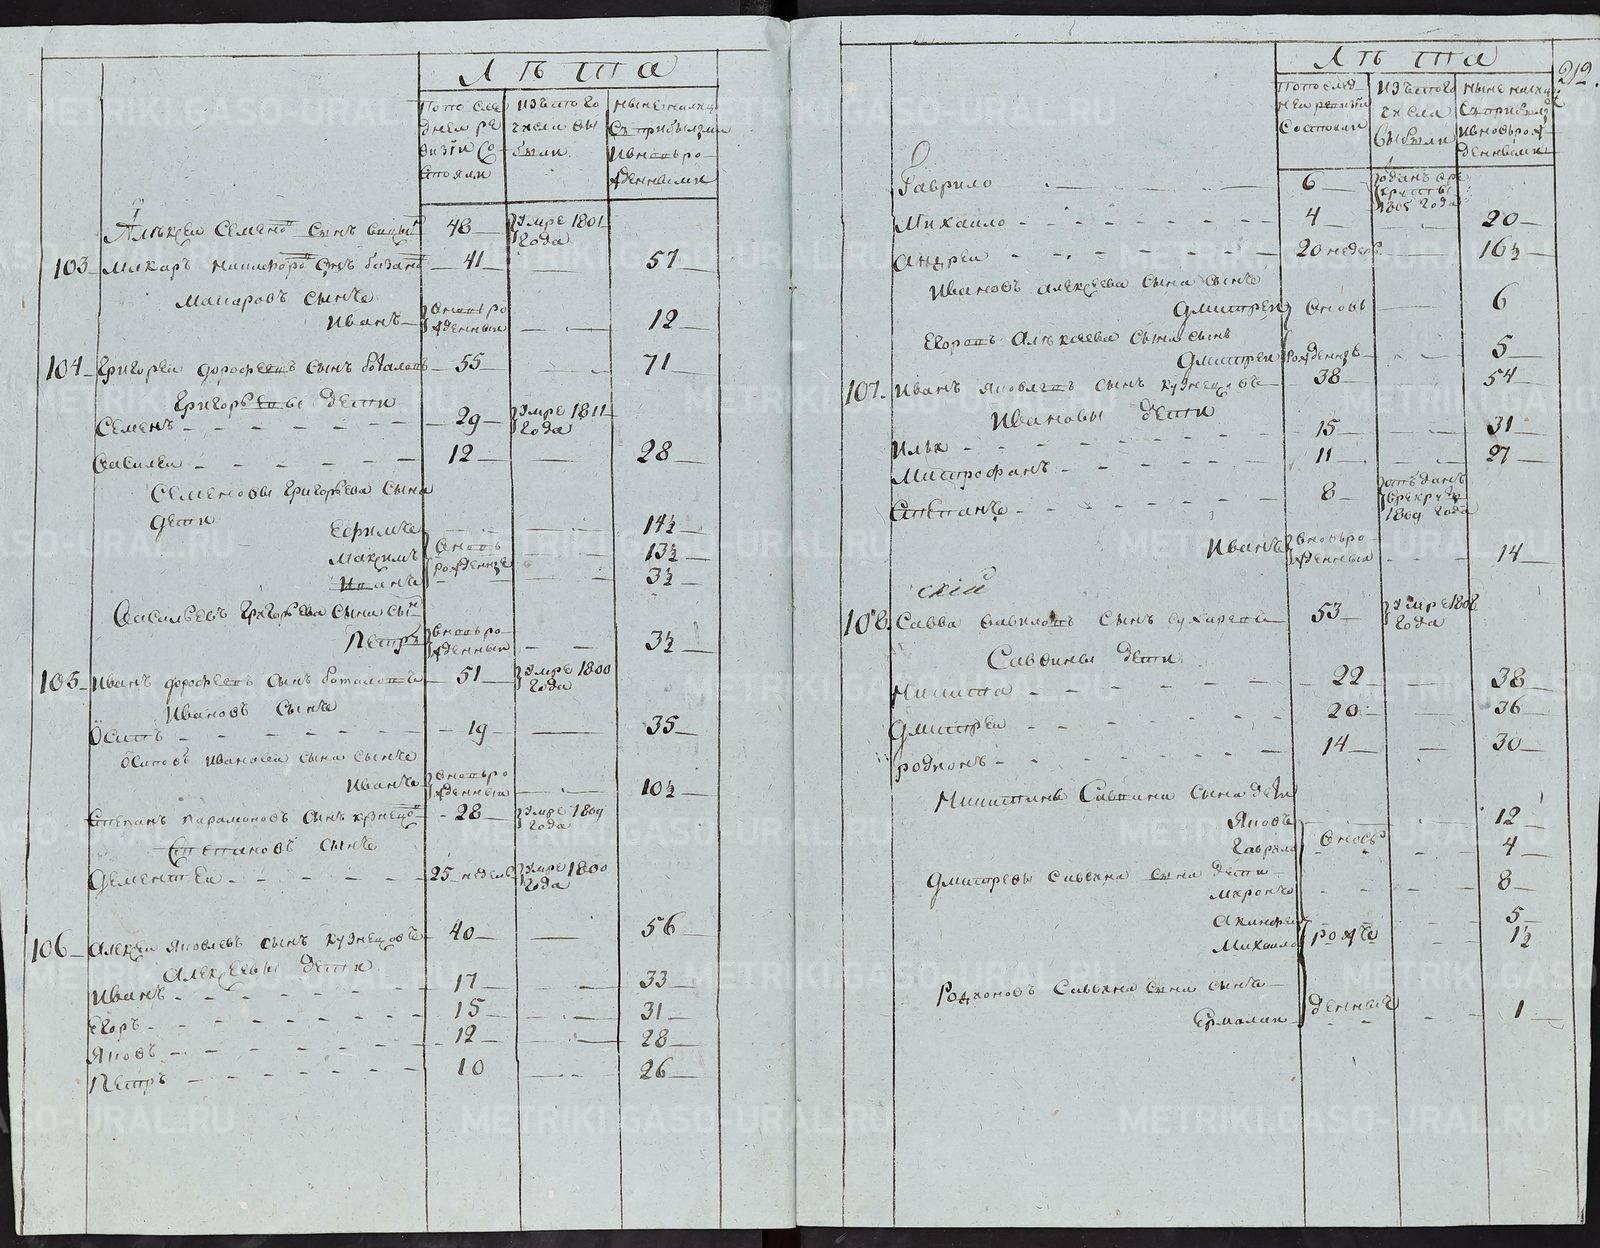 Лѣта
По послѣ
дней ре
визіи со
стояли
Изъ того
числа вы
были
Ныне налицо
съ прибылыми
и вновь ро
жденными
Алексеи Семенов сынъ
48
умре 1801
года
103 Макаръ сынъ
41
57
Макаровъ сынъ
Иванъ
вновь ро
жденный
12
104 Григореи Дорофеевъ сынъ Боталовъ
55
71
Григорьевы дети
Семенъ
29
умре 1811
года
Василеи
12
28
Семеновы Григорьева сына
дети
Ефимъ
14½
Максимъ
вновь
рожденные
13½
Иванъ
3½
Васильевъ Григорьева сына сын
Петръ
вновь ро
жденный
3½
105 Иванъ Дорофеевъ сынъ Боталовъ
51
умре 1800
года
Ивановъ сынъ
Осипъ
19
35
Осиповъ Иванова сына сынъ
Иванъ
вновь ро
жденный
10½
Степанъ Парамоновъ сынъ Кузнецо
28
умре 1809
года
Степановъ сынъ
Дементеи
25 недель
умре 1800
года
106 Алексеи Яковлевъ сынъ Кузнецовъ
40
56
Алексеевы дети
Иванъ
17
33
Егоръ
15
31
Яковъ
12
28
Петръ
10
26
Лѣта
212.
По послед
ней ревизии
состояли
Изъ того
числа
выбыли
Ныне налицо
съ прибылы
и вновь рож
денными
Гаврило
6
отданъ в ре
круты
1805 года
Михаило
4
20
Андреи
20 недель
16½
Ивановъ Алексеева сына сынъ
Дмитреи
вновь
6
Егоровъ Алексеева сына сынъ
Дмитреи
рожденны
5
107. Иванъ Яковлевъ сынъ Кузнецовъ
38
54
Ивановы дети
Илья
15
31
Митрофанъ
11
27
Степанъ
8
отъданъ
в рекруты
1809 года
Иванъ
вновь ро
жденный
14
скій
108. Савва Вавиловъ сынъ Сухарев
53
умре 1808
года
Саввины дети
Никита
22
38
Дмитреи
20
36
Родионъ
14
30
Никитины Саввина сына дети
Яковъ
12
Гаврило
вновь
4
Дмитревы Саввина сына дети
Миронъ
8
Акинфеи
5
Михаило
рож
1½
Родионовъ Саввина сына сынъ
Ермолаи
денный
1
METRIKI.GASO-URAL.RU